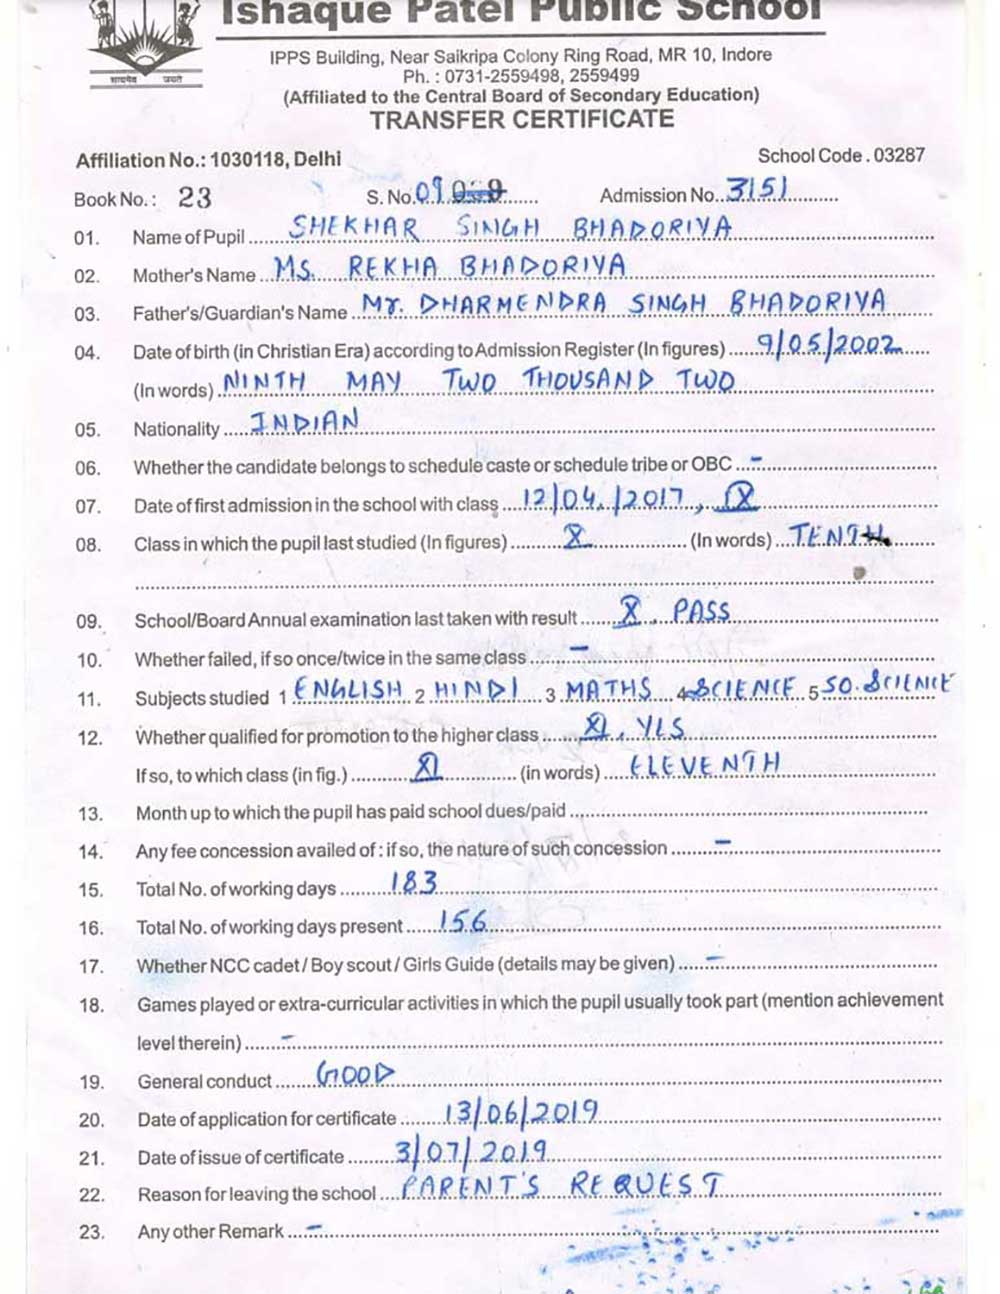 Ishaque Patel Public School
सत्यमेव जयते
IPPS Building, Near Saikripa Colony Ring Road, MR 10, Indore
Ph. : 0731-2559498, 2559499
(Affiliated to the Central Board of Secondary Education)
TRANSFER CERTIFICATE
Affiliation No.: 1030118, Delhi School Code . 03287
Book No. : 23 S. No. 09 Admission No. 3151
01. Name of Pupil SHEKHAR SINGH BHADORIYA
02. Mother's Name MS. REKHA BHADORIYA
03. Father's/Guardian's Name Mr. DHARMENDRA SINGH BHADORIYA
04. Date of birth (in Christian Era) according to Admission Register (In figures) 9/05/2002
(In words) NINTH MAY TWO THOUSAND TWO
05. Nationality INDIAN
06. Whether the candidate belongs to schedule caste or schedule tribe or OBC -
07. Date of first admission in the school with class 12/04/2017, IX
08. Class in which the pupil last studied (In figures) X (In words) TENTH
09. School/Board Annual examination last taken with result X, PASS
10. Whether failed, if so once/twice in the same class -
11. Subjects studied 1 ENGLISH 2 HINDI 3 MATHS 4 SCIENCE 5 SO. SCIENCE
12. Whether qualified for promotion to the higher class XI, YES
If so, to which class (in fig.) XI (in words) ELEVENTH
13. Month up to which the pupil has paid school dues/paid
14. Any fee concession availed of : if so, the nature of such concession -
15. Total No. of working days 183
16. Total No. of working days present 156
17. Whether NCC cadet / Boy scout / Girls Guide (details may be given) -
18. Games played or extra-curricular activities in which the pupil usually took part (mention achievement
level therein) -
19. General conduct GOOD
20. Date of application for certificate 13/06/2019
21. Date of issue of certificate 3/07/2019
22. Reason for leaving the school PARENT'S REQUEST
23. Any other Remark -